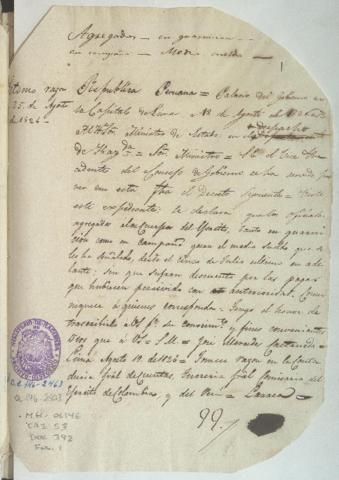 Agregados — en guarnicion —
en campaña — Medio sueldo —
Tomose razon
25. de Agosto
de 1826 —
Republica Peruana = Palacio del Gobierno en
la Capital de Lima á 18 de Agosto de 1826 =
Al Ministro de Estado en el
despacho
de Hazda = Sor Ministro = S.E. el Presidente
del Consejo de Gobierno se ha servido
en esta fha el Decreto siguiente = Visto
este expediente: se declara que los oficiales
agregados á los cuerpos del Ejercito, tanto en guarni-
cion como en campaña gozan el medio sueldo que
les ha señalado, desde el de Julio ultimo en ad
lante: sin que sufran descuentos por las pagas
que hubiesen percivido con anterioridad. Comu
niquese á quienes corresponda = Tengo el honor de
transcribirlo á VS. pa su conocimto y fines convenientes
Dios gue á VS = S.M. = José
Lima Agosto 19 de 1826 = Tomese razon en la Conta
duria Gral de cuentas, Tesoreria Gral Comisaria del
Ejército de Colombia, y del Perú = Larrea =
O.L. 146-2463
O.L. 146-2303
MH-OL146
CAJ. 53
DOC 392
Fol. 1